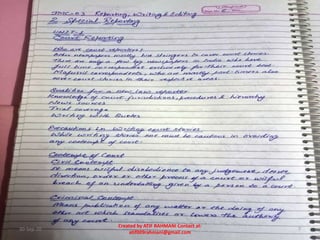 JMC-02 Reporting, Writing & Editing
2 Special Reporting
UNIT-2
Court Reporting
Who are court reporters?
Other newspapers mostly hire stringers to cover court stories.
There are only a few big newspapers in India who have
full time correspondent
Mofussil correspondents, who are mostly part-timers also
cover court stories in their areas.
Qualities for a law reporter
Knowledge of court jurisdictions, procedures & hierarchy
News sources
Trial coverage
Working with
Precautions in writing court stories
While writing stories one must be cautious in avoiding
any contempt of court.
Contempt of Court
Civil Contempt
It means wilful disobedience to any judgement, decree
direction, order or other process of a court or wilful
breach of an undertaking given by a person to a court.
Criminal Contempt
Means publication of any matter or the doing of any
other act which scandalises or lowers the authority
of any court.
30-Sep-20
Created by ATIF RAHMANI Contact at-
atifatifrahmani@gmail.com